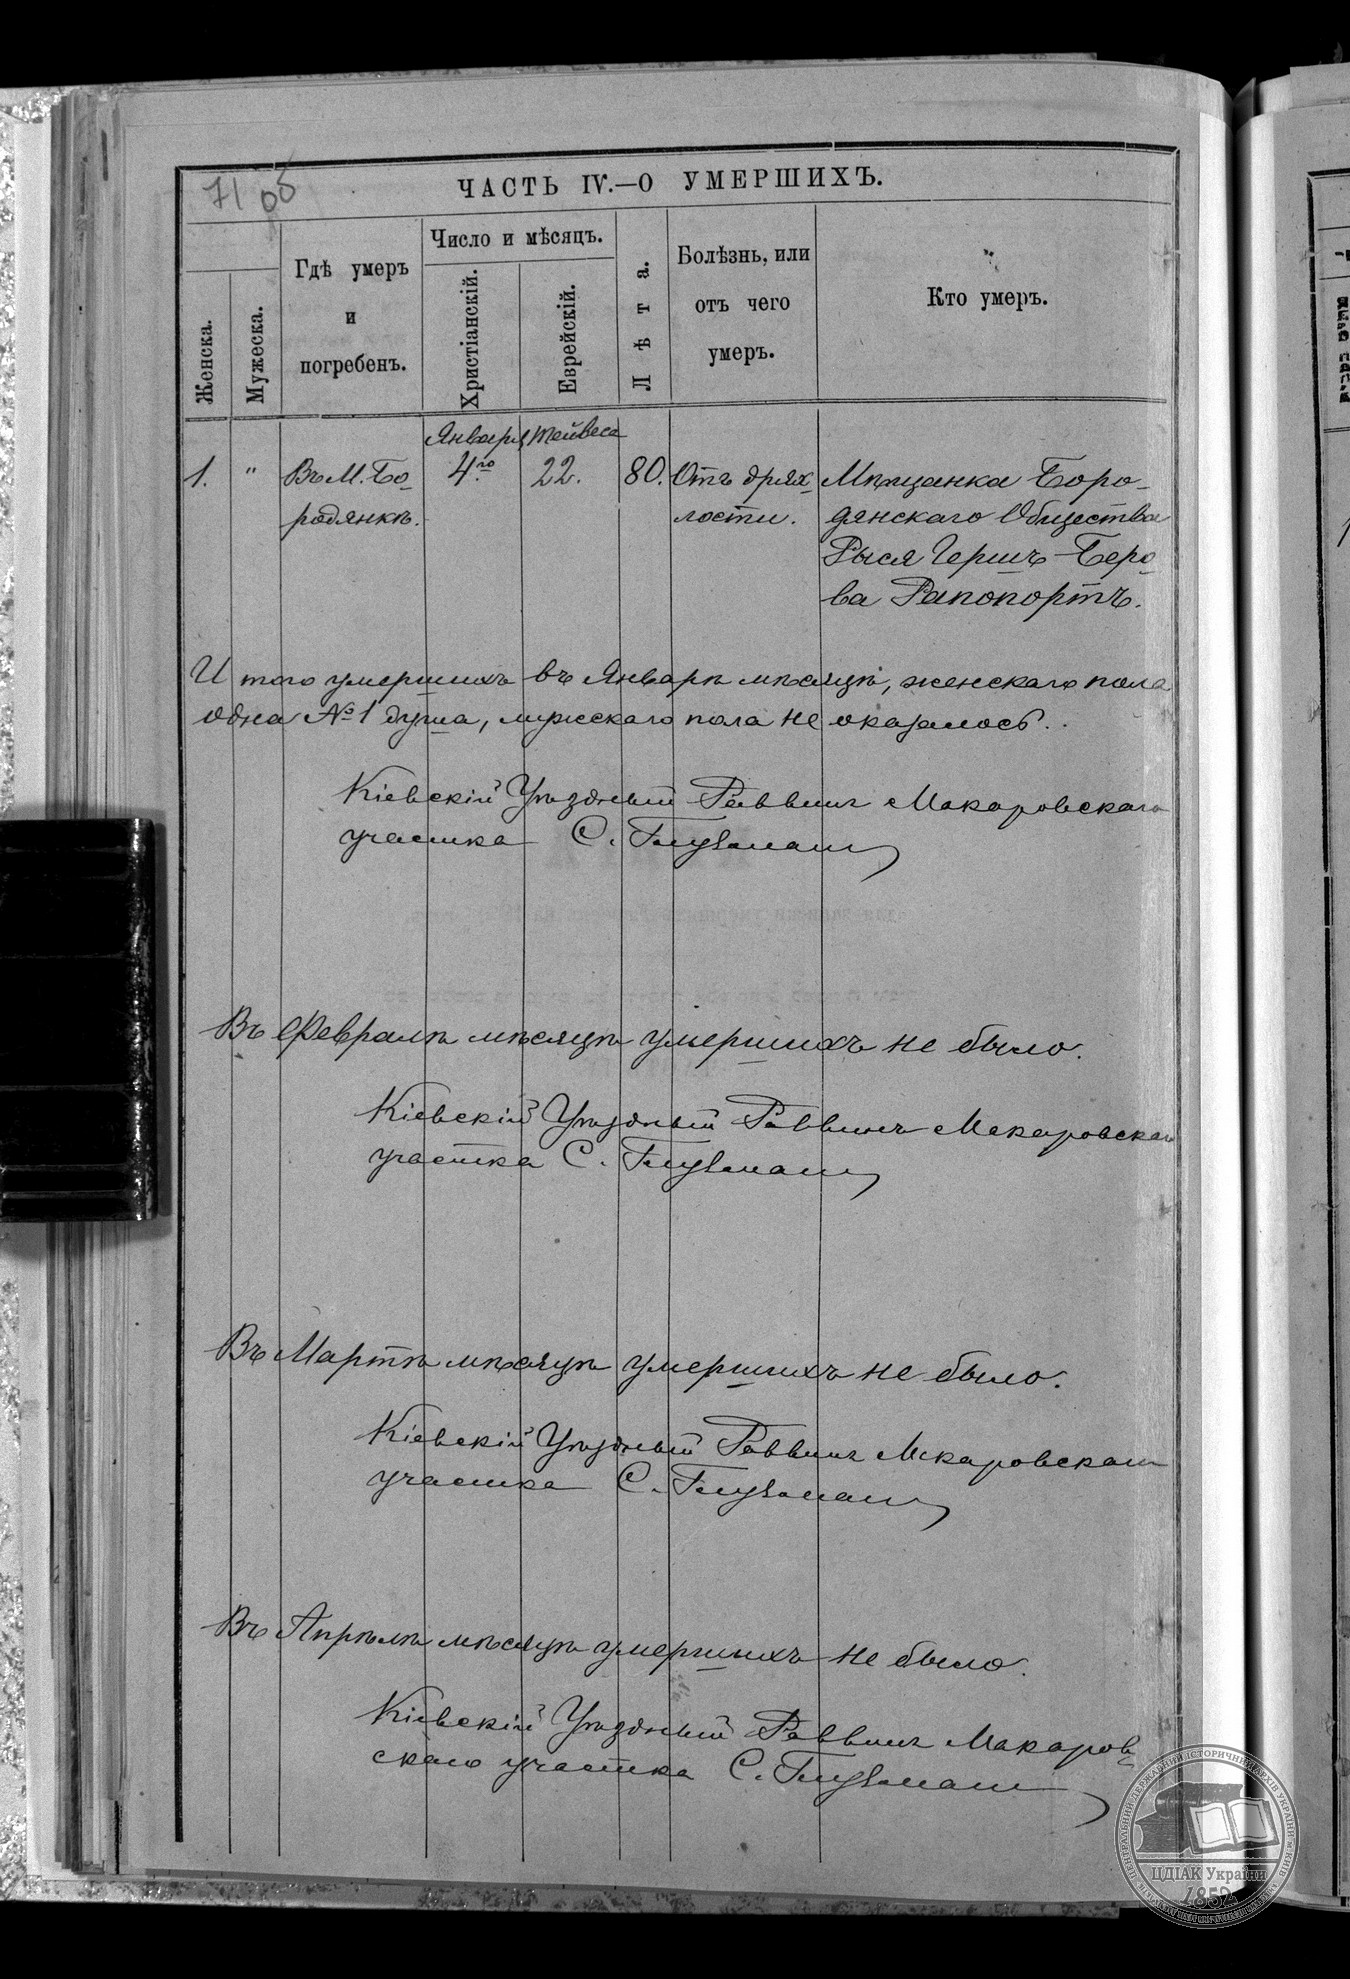 71 об
ЧАСТЬ IV.—О УМЕРШИХЪ.
Женска.
Мужеска.
Гдѣ умеръ
и
погребенъ.
Число и мѣсяцъ.
Христіанскій.
Еврейскій.
Лѣта.
Болѣзнь, или
отъ чего
умеръ.
Кто умеръ.
Января Тейвеса
1. " Въ М. Бо- 4го 22. 80. Отъ дрях- Мѣщанка Боро-
родянкѣ. лости. дянскаго Общества
Рыся Гершъ-Беро-
ва Рапопортъ.
Итого умершихъ въ Январѣ мѣсяцѣ, женскаго пола
одна №1 душа, мужескаго пола не оказалось.
Кіевскій Уѣздный Раввинъ Макаровскаго
участка С. Глузманъ
Въ Февралѣ мѣсяцѣ умершихъ не было.
Кіевскій Уѣздный Раввинъ Макаровскаго
участка С. Глузманъ
Въ Мартѣ мѣсяцѣ умершихъ не было.
Кіевскій Уѣздный Раввинъ Макаровскаго
участка С. Глузманъ
Въ Апрѣлѣ мѣсяцѣ умершихъ не было.
Кіевскій Уѣздный Раввинъ Макаров-
скаго участка С. Глузманъ
ЦЕНТРАЛЬНИЙ ДЕРЖАВНИЙ ІСТОРИЧНИЙ АРХІВ УКРАЇНИ М.КИЇВ
ЦДІАК України
1852